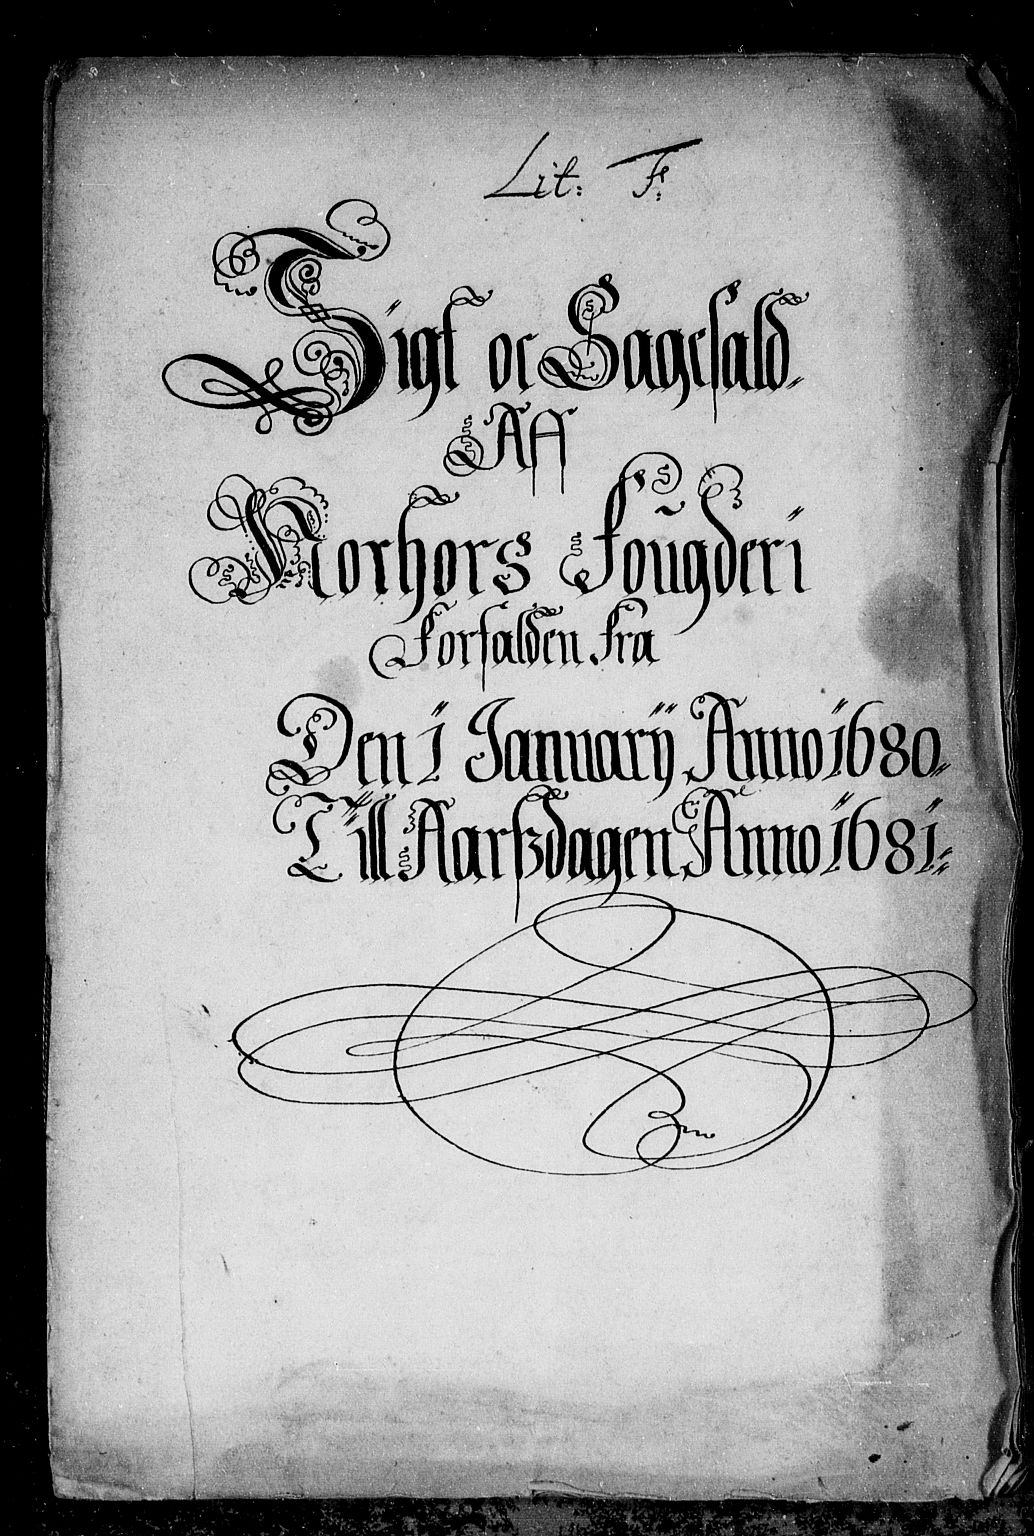 Lit: F:
Sigt oc Sagefald
AA
Norhors Fougderi
Forfalden fra
Den 1 Januarij Anno 1680
Till Aarszdagen Anno 1681